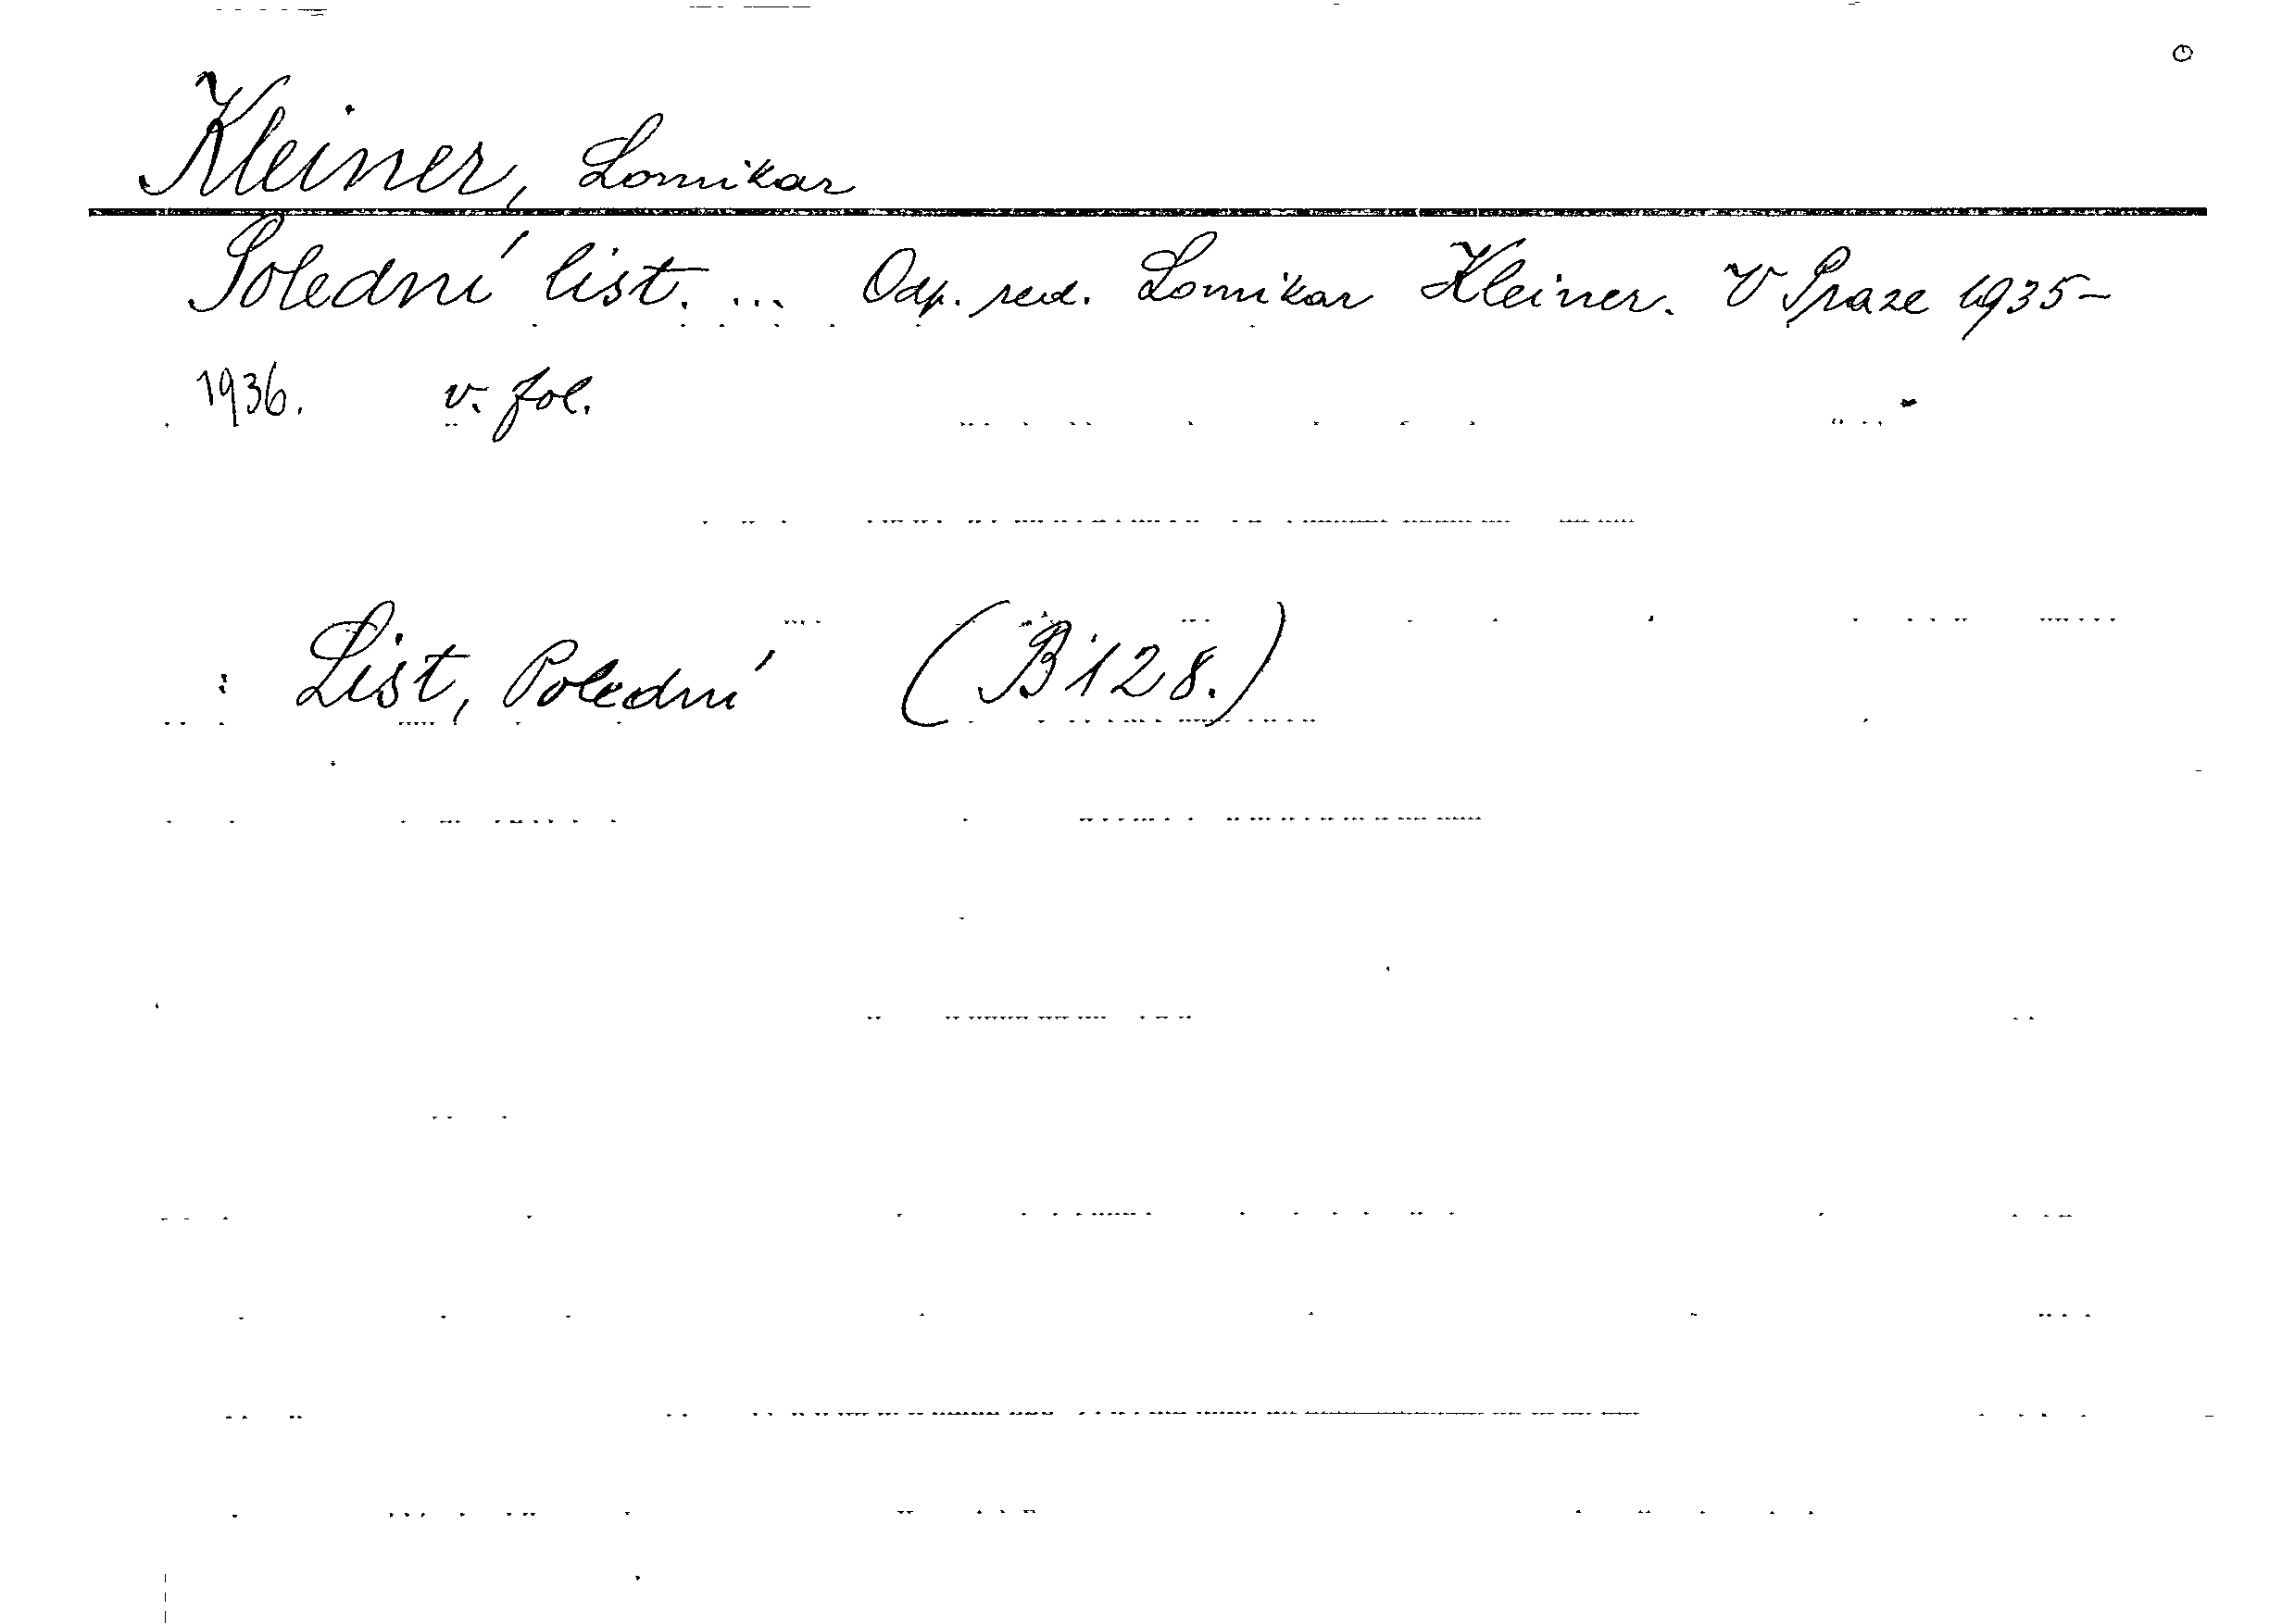 Kleiner, Lomikar
Polední list. ... Odp. red. Lomikar Kleiner. V Praze 1935–
1936. v. fol.
: List, Polední (B 128.)